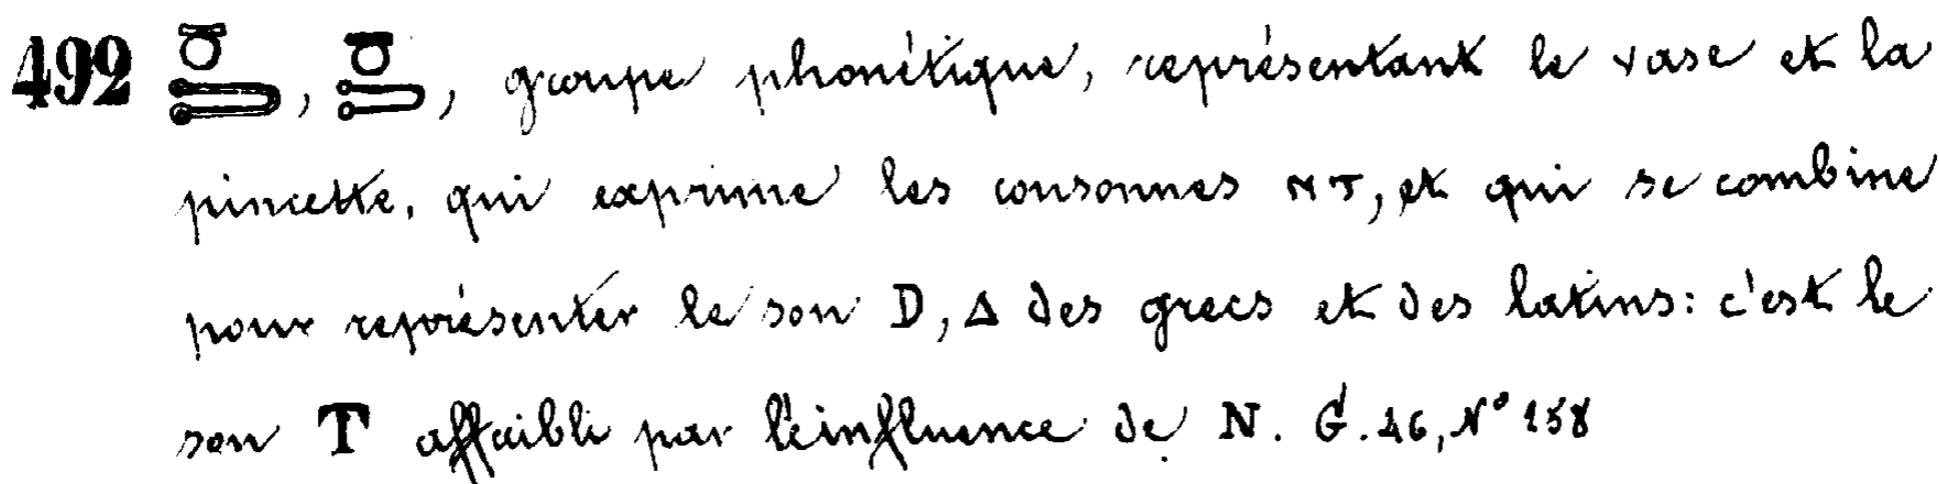 492 𓏌𓍿, 𓏌𓍿, groupe phonétique, représentant le vase et la
pincette, qui exprime les consonnes ⲛⲧ, et qui se combine
pour représenter le son D, Δ des grecs et des latins: c'est le
son T affaibli par l'influence de N. G. 46, N° 158